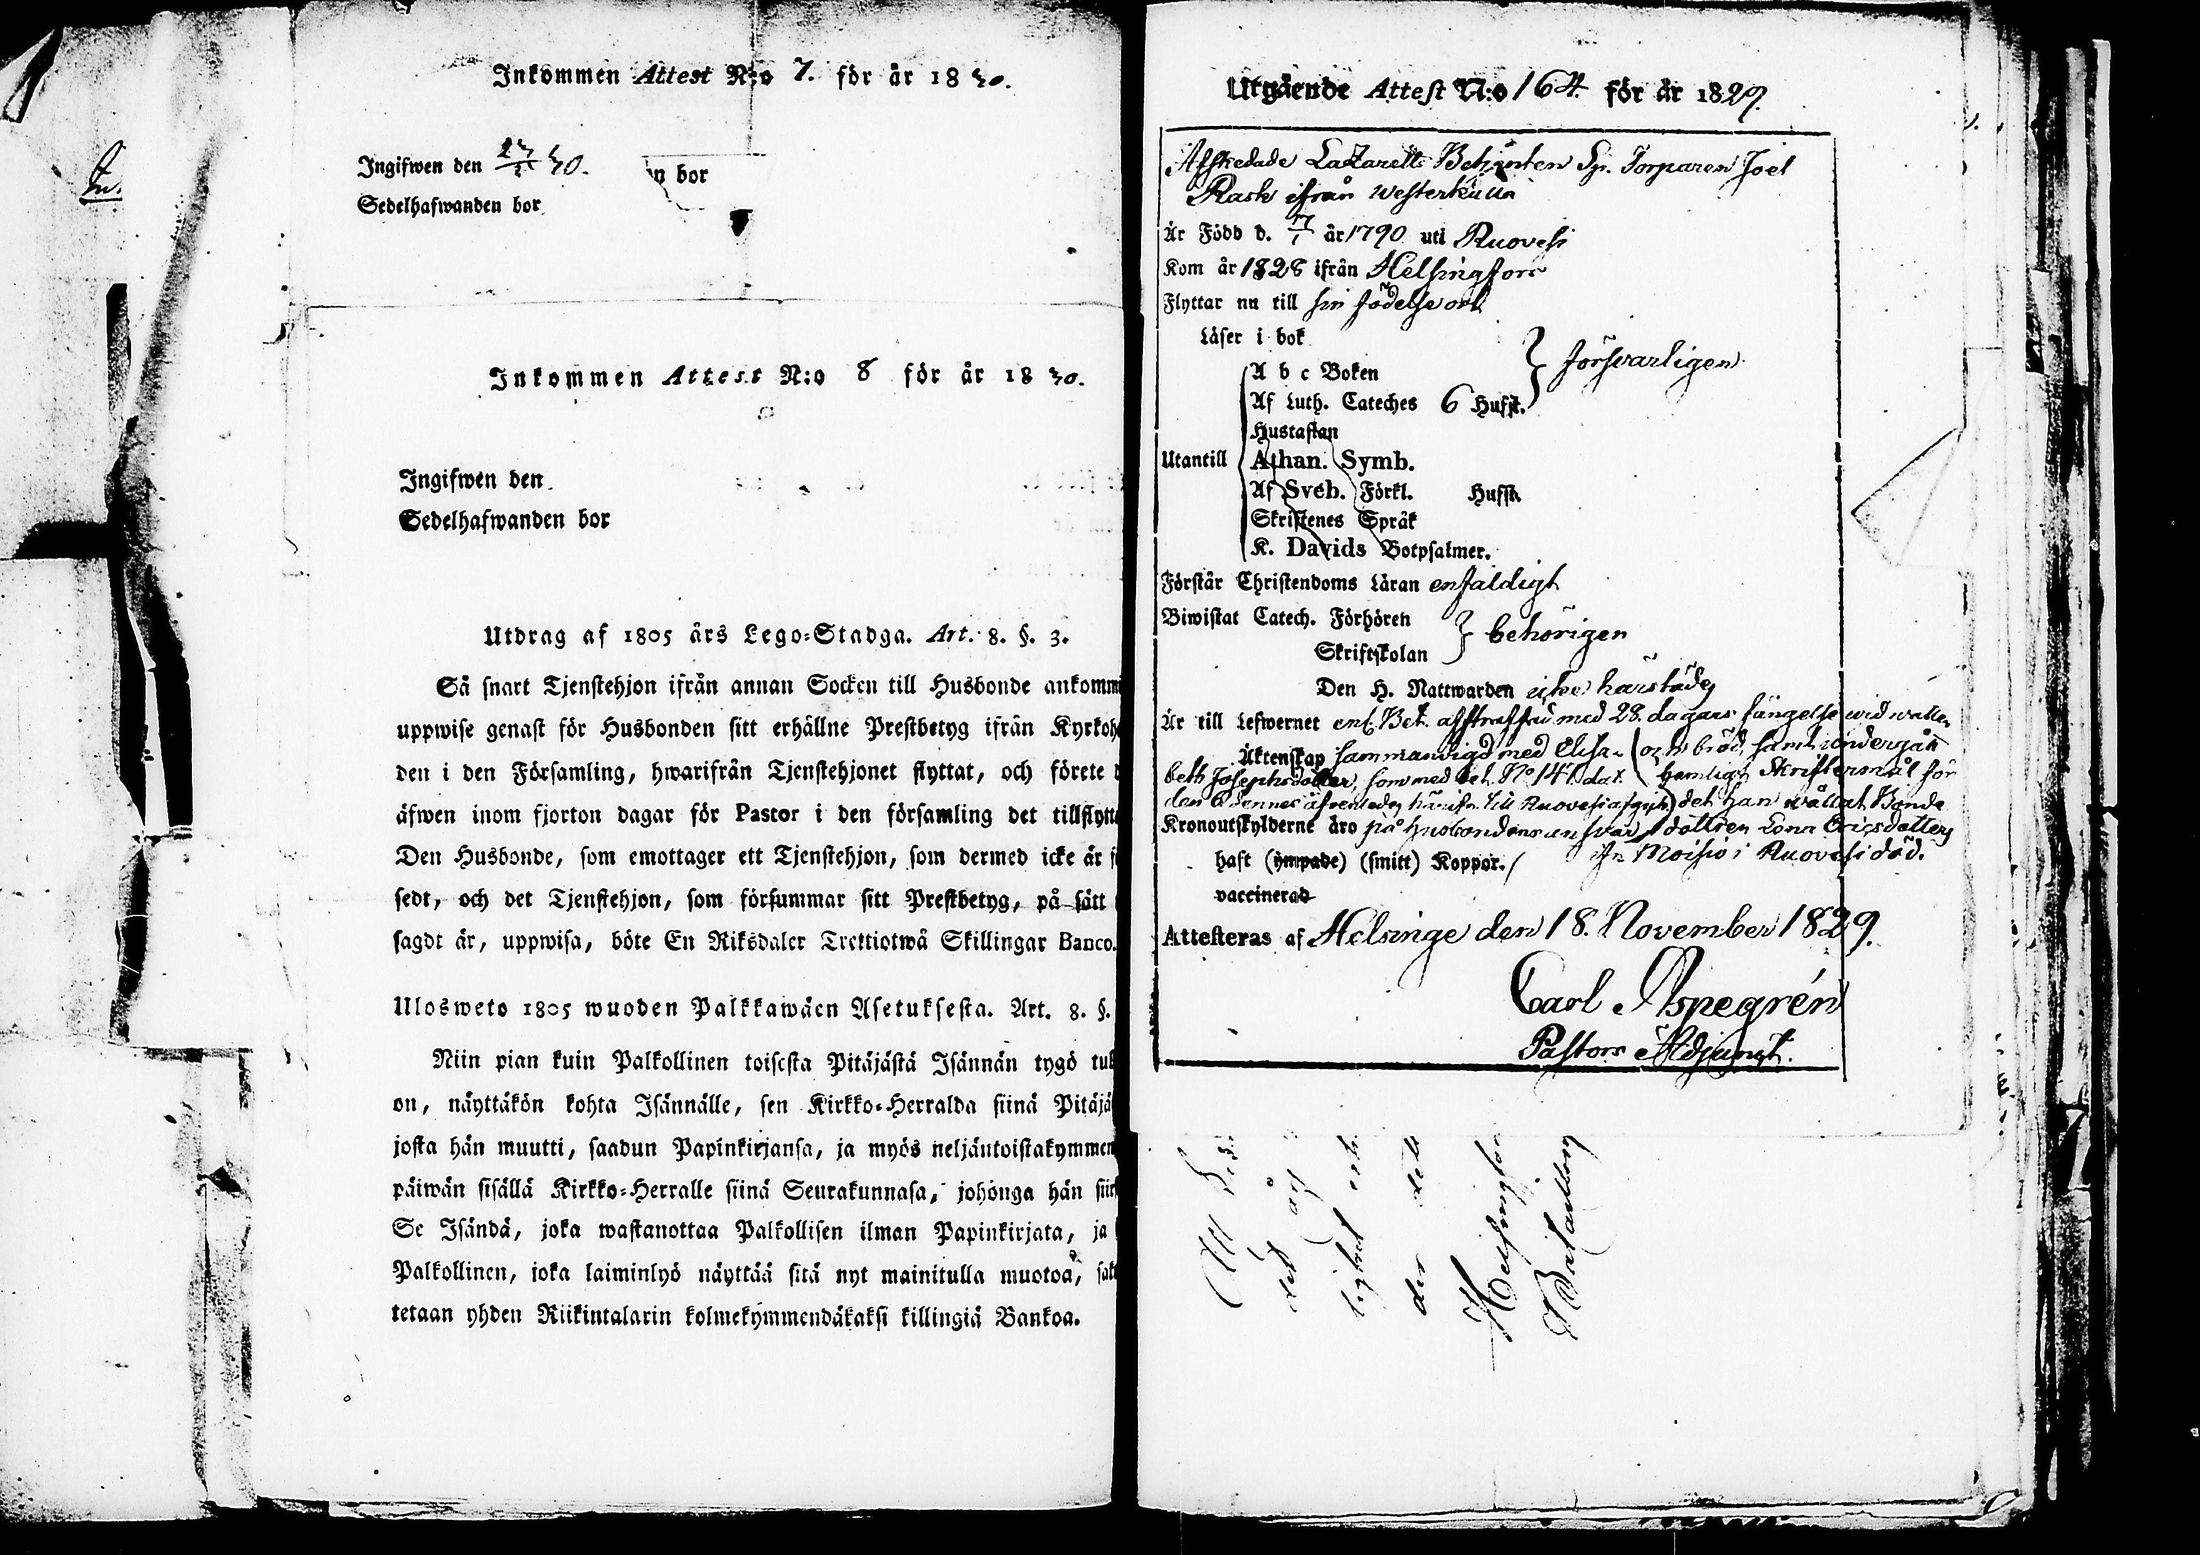 Inkommen Attest N:o 7. för år 1830.
Ingifwen den 30.
Sedelhafwanden bor
n bor
Inkommen Attest N:o 8 för år 1830.
Ingifwen den
Sedelhafwanden bor
Utdrag af 1805 års Lego-Stadga. Art. 8. §. 3.
Så snart Tjenstehjon ifrån annan Socken till Husbonde ankommi
uppwise genast för Husbonden sitt erhållne Prestbetyg ifrån Kyrkohe
den i den Församling, hwarifrån Tjenstehjonet flyttat, och förete d
äfwen inom fjorton dagar för Pastor i den församling det tillflytta
Den Husbonde, som emottager ett Tjenstehjon, som dermed icke är f
sedt, och det Tjenstehjon, som försummar sitt Prestbetyg, på sätt
sagdt är, uppwisa, böte En Riksdaler Trettiotwå Skillingar Banco.
Ulosweto 1805 wuoden Palkkawäen Asetuksesta. Art. 8. §.
Niin pian kuin Palkollinen toisesta Pitäjästä Isännän tygö tul
on, näyttäkön kohta Isännälle, sen Kirkko-Herralda siinä Pitäjä
josta hän muutti, saadun Papinkirjansa, ja myös neljäntoistakymmen
päiwän sisällä Kirkko-Herralle siinä Seurakunnasa, johonga hän siir
Se Isändä, joka wastanottaa Palkollisen ilman Papinkirjata, ja
Palkollinen, joka laiminlyö näyttää sitä nyt mainitulla muotoa, sak
tetaan yhden Riikintalarin kolmekymmendäkaksi killingiä Bankoa.
Utgående Attest N:o 164. för år 1829.
Afskedade Lazaretts Betjenten Sp. Torparen Joel
Rask ifrån Westerkulla
Är Född d. 17/1 år 1790 uti Ruovesi
Kom år 1828 ifrån Helsingfors
Flyttar nu till sin födelse ort
Läser i bok
A b c Boken } försvarligen
Af Luth. Cateches 6 Hufst.
Hustaflan
Utantill Athan. Symb.
Af Sveb. Förkl. Hufst.
Skriftenes Språk
K. Davids Botpsalmer.
Förstår Christendoms Läran enfaldigt
Biwistat Catech. Förhören } behörigen
Skriftskolan
Den H. Nattwarden icke härstädes
Är till Lefwernet enl. Bet. afstraffad med 28. dagars fängelse wid watten
Äktenskap sammanvigd med Elisa- ( och bröd, samt undergått
beth Josephsdotter, som med bet. N:o 141. dat. hemligt Skriftermål för
den 6 dennes häriifr. till Ruovesi det han wållat Bonde
Kronoutskylderne äro på husbondens answar dottren Lena Ericsdotters
haft (ympade) (smitt) Koppor. ifr. Moisio i Ruovesi död.
vaccinerad
Attesteras af Helsinge den 18. November 1829.
Carl Aspegrén
Pastors Adjunct.
Att
det års
lighet
der
Helsingfors